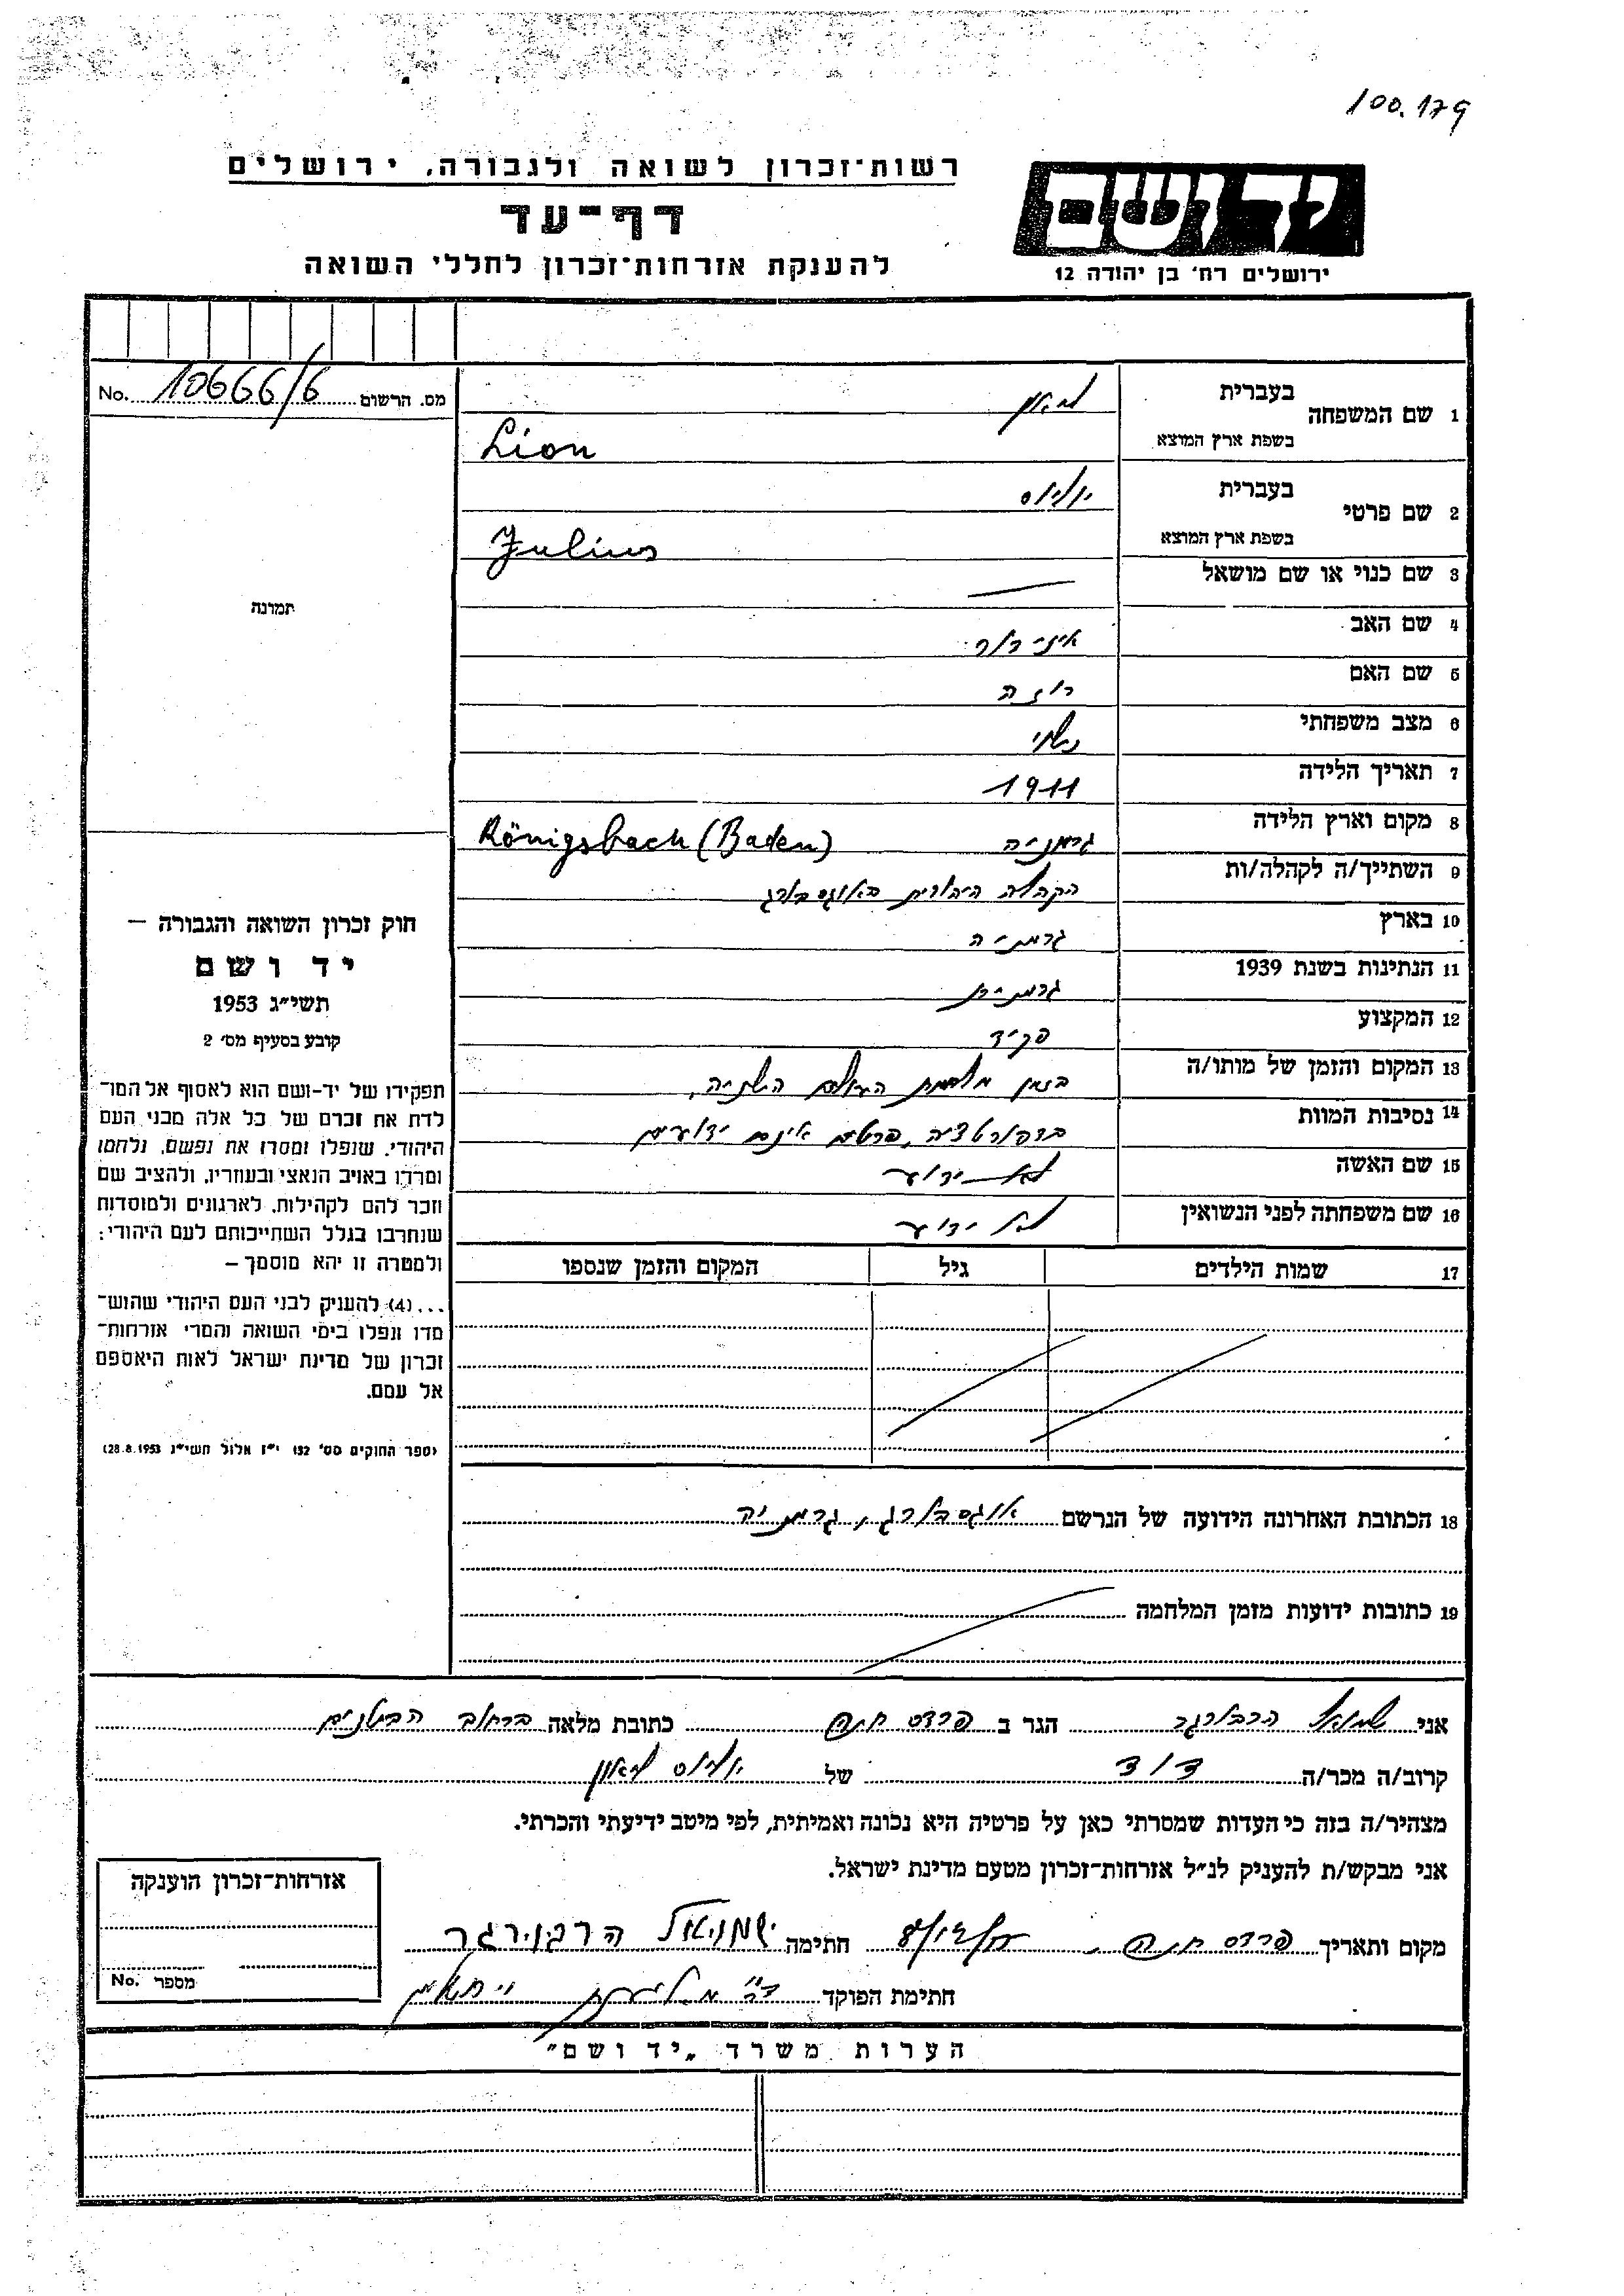 100.179
רשות־זכרון לשואה ולגבורה, ירושלים
דף־עד
להענקת אזרחות־זכרון לחללי השואה
יד ושם
ירושלים רח׳ בן יהודה 12
No. 10666/6 מס. הרשום
1 שם המשפחה בעברית ליאון
בשפת ארץ המוצא Lion
2 שם פרטי בעברית יוליוס
בשפת ארץ המוצא Julius
3 שם כנוי או שם מושאל —
4 שם האב
5 שם האם רוזה
6 מצב משפחתי נשוי
7 תאריך הלידה 1911
8 מקום וארץ הלידה גרמניה Königsbach (Baden)
9 השתייך/ה לקהלה/ות הקהלה היהודית באוגסבורג
10 בארץ גרמניה
11 הנתינות בשנת 1939 גרמנית
12 המקצוע פקיד
13 המקום והזמן של מותו/ה בזמן מלחמת העולם השניה,
14 נסיבות המוות בדפורטציה, פרטים אינם ידועים
15 שם האשה לא ידוע
16 שם משפחתה לפני הנשואין לא ידוע
17 שמות הילדים גיל המקום והזמן שנספו
תמונה
חוק זכרון השואה והגבורה —
יד ושם
תשי״ג 1953
קובע בסעיף מס׳ 2
תפקידו של יד-ושם הוא לאסוף אל המו־
לדת את זכרם של כל אלה מבני העם
היהודי, שנפלו ומסרו את נפשם, נלחמו
ומרדו באויב הנאצי ובעוזריו, ולהציב שם
וזכר להם לקהילות, לארגונים ולמוסדות
שנחרבו בגלל השתייכותם לעם היהודי;
ולמטרה זו יהא מוסמך —
...(4) להעניק לבני העם היהודי שהוש־
מדו ונפלו בימי השואה והמרי אזרחות־
זכרון של מדינת ישראל לאות היאספם
אל עמם.
(ספר החוקים מס׳ 132 י״ז אלול תשי״ג 28.8.1953)
18 הכתובת האחרונה הידועה של הנרשם אוגסבורג, גרמניה
19 כתובות ידועות מזמן המלחמה
אני שמואל הרבורגר הגר ב פרדס חנה כתובת מלאה ברחוב הבטנים
קרוב/ה מכר/ה דוד של יוליוס ליאון
מצהיר/ה בזה כי העדות שמסרתי כאן על פרטיה היא נכונה ואמיתית, לפי מיטב ידיעתי והכרתי.
אני מבקש/ת להעניק לנ״ל אזרחות־זכרון מטעם מדינת ישראל.
מקום ותאריך פרדס חנה, חתימה שמואל הרבורגר
חתימת הפוקד
אזרחות־זכרון הוענקה
No. מספר
הערות משרד „יד ושם״